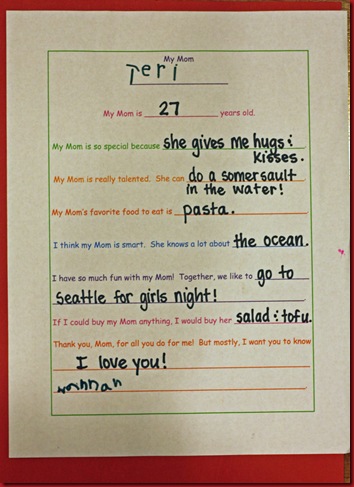 My Mom
Teri
My Mom is 27 years old.
My Mom is so special because she gives me hugs &
kisses.
My Mom is really talented. She can do a somersault
in the water!
My Mom's favorite food to eat is pasta.
I think my Mom is smart. She knows a lot about the ocean.
I have so much fun with my Mom! Together, we like to go to
Seattle for girls night!
If I could buy my Mom anything, I would buy her salad & tofu.
Thank you, Mom, for all you do for me! But mostly, I want you to know
I love you!